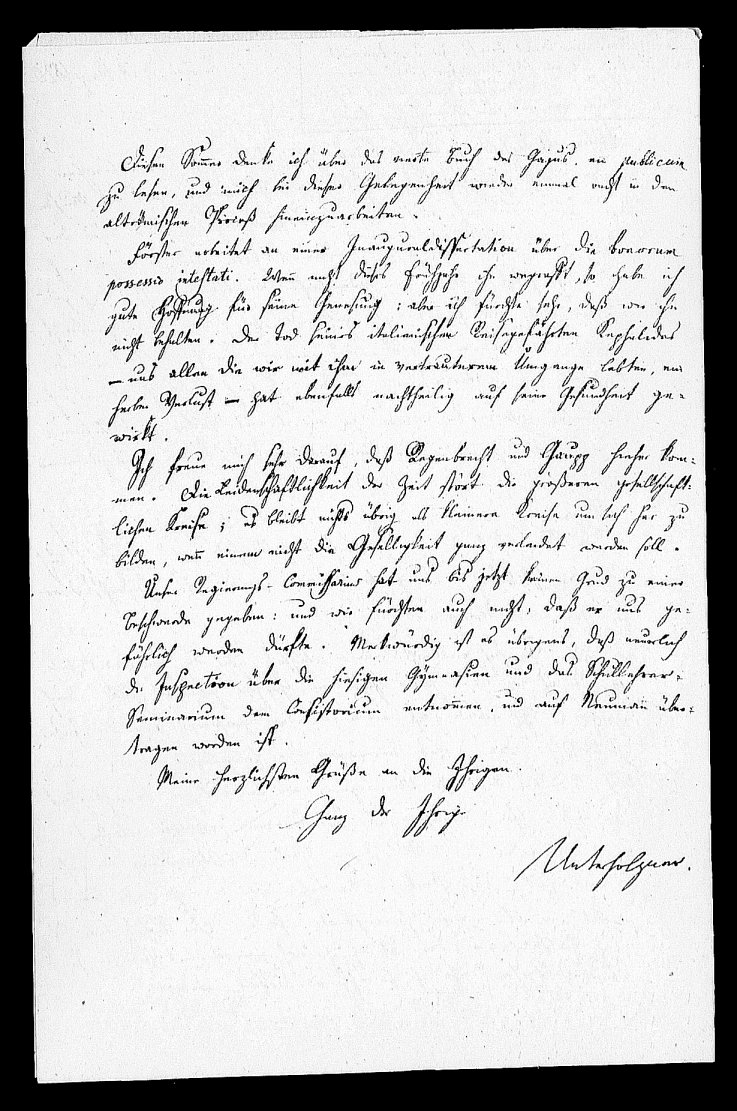 Diesen Sommer denke ich über das vierte Buch des Gajus. ein publicum
zu lesen, und mich bei dieser Gelegenheit wieder einmal recht in den
altrömischen Proceß hineinzuarbeiten.
Förster arbeitet an einer Inauguraldissertation über die bonorum
possessio intestati. Wenn nicht dieses Frühjahr ihn wegrafft, so habe ich
gute Hoffnung für seine Genesung; aber ich fürchte sehr, daß wir ihn
nicht behalten. Der Tod seines italienischen Reisegefährten Kephalides
– uns allen die wir mit ihm in vertrauterem Umgange lebten, ein
herber Verlust – hat ebenfalls nachtheilig auf seine Gesundheit ge-
wirkt.
Ich freue mich sehr darauf, daß Regenbrecht und Gaupp hieher kom-
men. Die Leidenschaftlichkeit der Zeit stört die größeren gesellschaft-
lichen Kreise; es bleibt nichts übrig als kleinere Kreise um sich her zu
bilden, wenn einem nicht die Geselligkeit ganz verleidet werden soll.
Unser Regierungs-Commissarius hat uns bis jetzt keinen Grund zu einer
Beschwerde gegeben: und wir fürchten auch nicht, daß er uns ge-
fährlich werden dürfte. Merkwürdig ist es übrigens, daß neuerlich
die Inspection über die hiesigen Gymnasien und das Schullehrer-
Seminarium dem Consistorium entnommen, und auf Neumann über-
tragen worden ist.
Meine herzlichsten Grüße an die Ihrigen.
Ganz der Ihrige
Unterholzner.